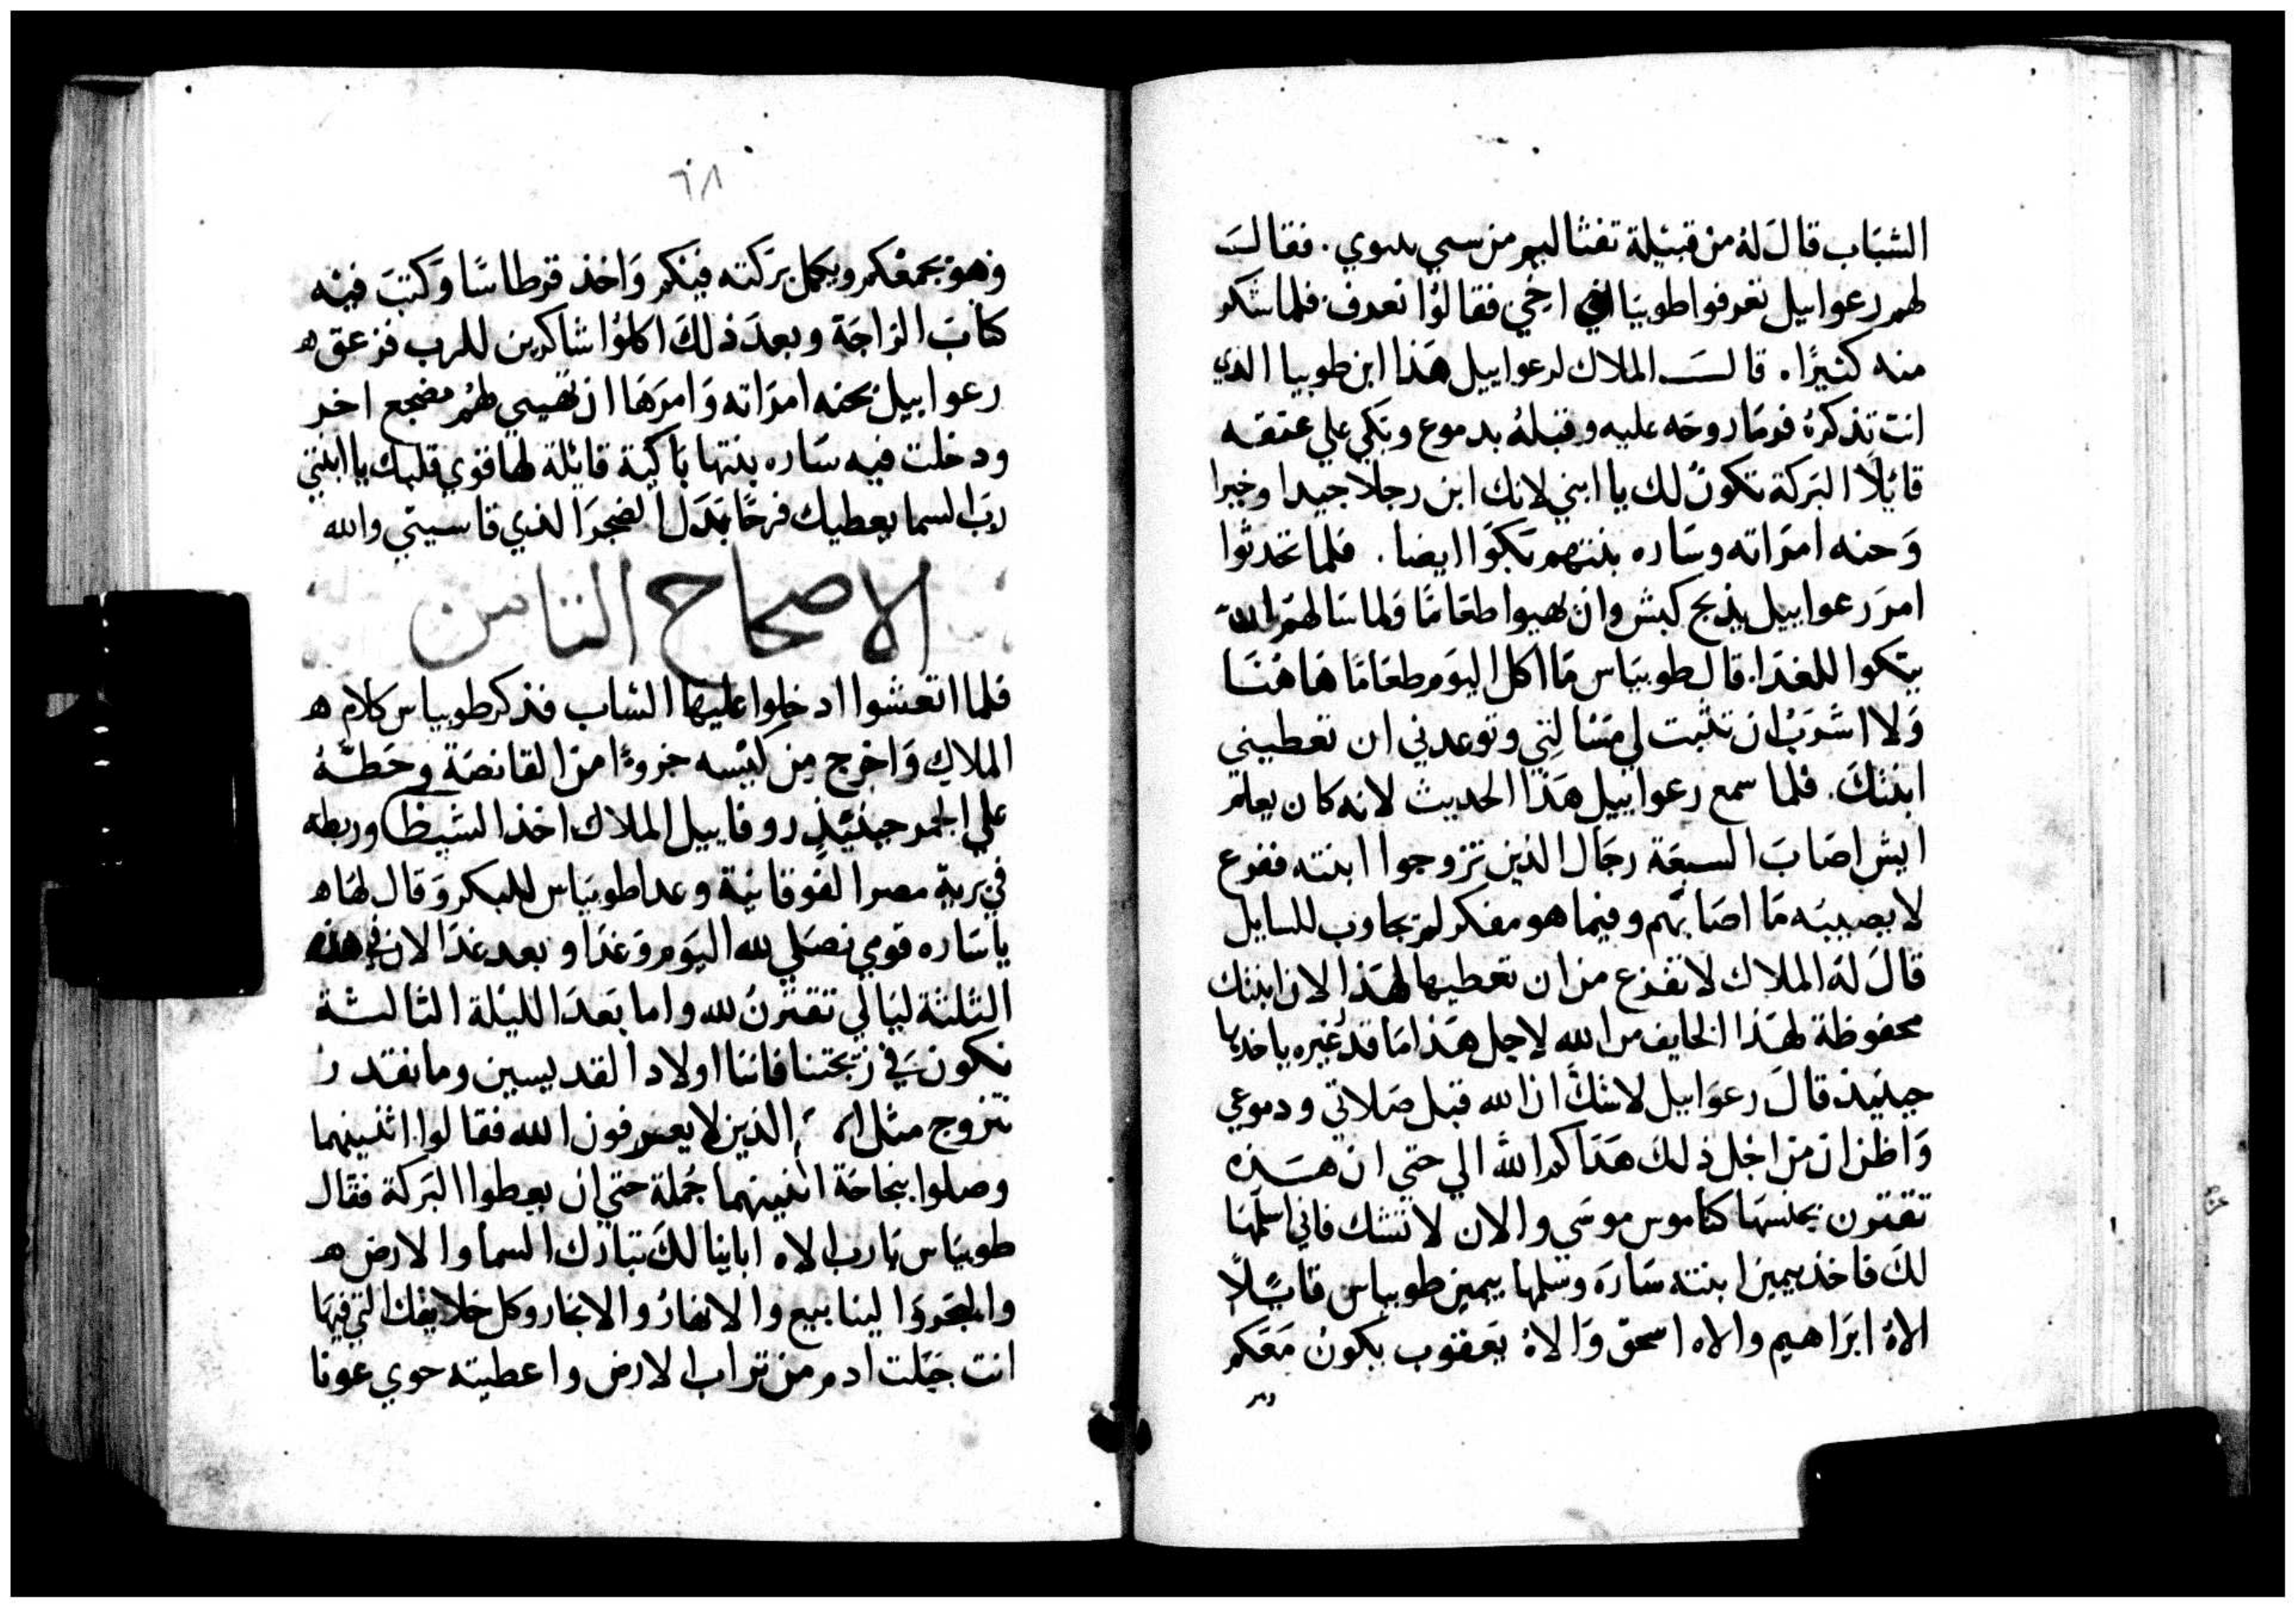 الشباب قال له من قبيلة تفثاليم من سبي نينوي. فقالت
لهم رعوابيل تعرفوا طوبيا اخي فقالوا نعرف فلما شكر
منه كثيرًا. قالت الملاك لرعوابيل هذا ابن طوبيا الذي
انت تذكره فرما روحه عليه وقبله بدموع وبكي علي عنقه
قائلًا البركة تكون لك يا ابني لانك ابن رجلا جيدا وخيرا
وحنه امراته وساره بنتهم بكوا ايضا. فلما تحدثوا
امر رعوابيل بذبح كبش وان يهيوا طعامًا ولما سالهم ان
يتكوا للغدا. قال طوبياس ما اكل اليوم طعامًا هاهنا
ولا اشرب ان تثبت لي مسالتي وتوعدني ان تعطيني
ابنتك. فلما سمع رعوابيل هذا الحديث لانه كان يعلم
ايش اصاب السبعة رجال الذين تزوجوا ابنته ففزع
لا يصيبه ما اصابهم وفيما هو مفكر لم يجاوب للسايل
قال له الملاك لا تفزع من ان تعطيها لهذا لان ابنتك
محفوظة لهذا الخايف من الله لاجل هذا ما قدر غيره ياخدها
حينيذ قال رعوابيل لا شك ان الله قبل صلاتي ودموعي
واظن ان من اجل ذلك هداكم الله الي حتي ان هذه
تقترن بجنسها كناموس موسي والان لا تشك فاني اسلمها
لك فاخذ بيمين ابنته ساره وسلمها بيمين طوبياس قايلًا
الاه ابراهيم والاه اسحق والاه يعقوب يكون معكم
وهو
وهو يجمعكم ويكمل بركته فيكم واخذ قرطاسًا وكتب فيه
كتاب الزاجة وبعد ذلك اكلوا شاكرين للرب فزعق
رعوابيل بحنه امراته وامرها ان تهيي لهم مضجع اخر
ودخلت فيه ساره بنتها باكية قايلة لها قوي قلبك يا ابنتي
رب السما يعطيك فرحًا بدل الضجر الذي قاسيتي والله
الاصحاح الثامن
فلما اتعشوا ادخلوا عليها الشاب فذكر طوبياس كلام
الملاك واخرج من كيسه جزوءًا من القانصة وحطه
علي الجمر حينيذ روفاييل الملاك اخذ الشيطا وربطه
في برية مصر الفوقانية وعدا طوبياس للبكر وقال لها
يا ساره قومي نصلي لله اليوم وغدا وبعد غدا لان في هذه
الثلثة ليالي نقترن لله واما بعد الليلة الثالثة
نكون في زيجتنا فاننا اولاد القديسين وما نقدر
نتزوج مثل الذين لا يعرفون الله فقالوا اثنينهما
وصلوا بنجاحة اثنينهما جملة حتي ان يعطوا البركة فقال
طوبياس يا رب الاه اباينا لك تبارك السما والارض
والبحر والينابيع والانهار والابحار وكل خلايقك التي فيها
انت جبلت ادم من تراب الارض واعطيته حوي عونا